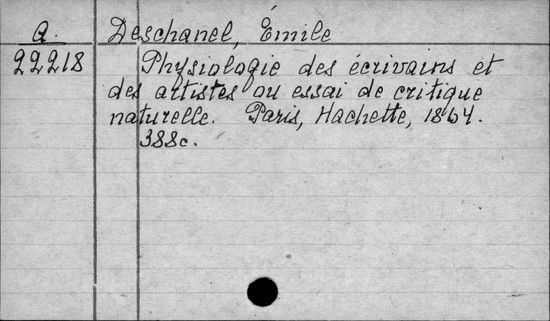 A. Deschanel, Émile
22218 Physiologie des écrivains et
des artistes ou essai de critique
naturelle. Paris, Hachette, 1864.
388c.